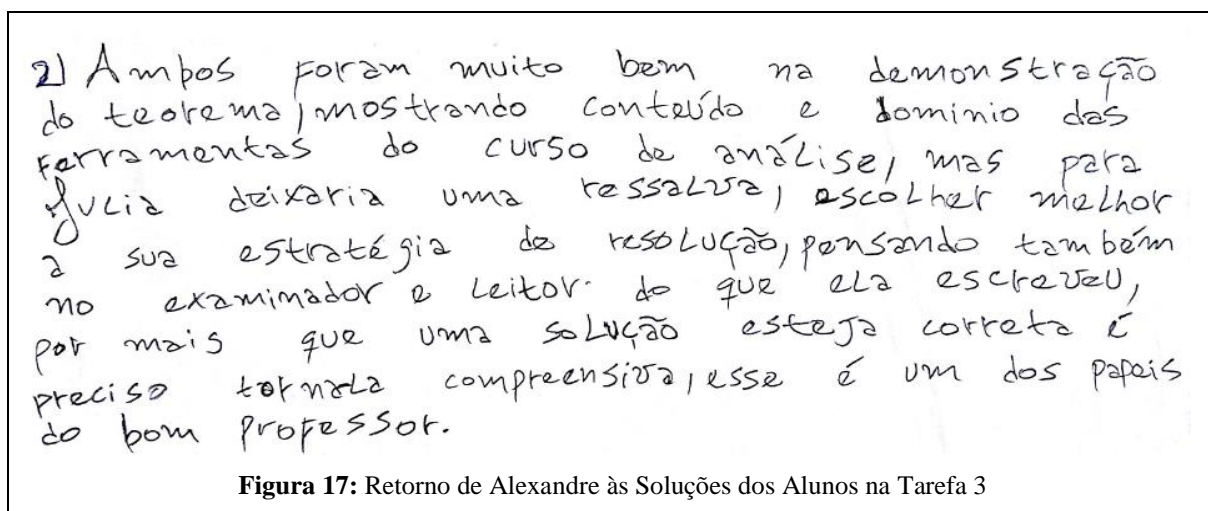 2) Ampos foram muito bem na demonstração
do teorema, mostrando conteúdo e dominio das
ferramentas do curso de análise, mas para
Julia deixaria uma ressalva, escolher melhor
a sua estratégia de resolução, pensando também
no examinador e leitor. do que ela escreveu,
por mais que uma solução esteja correta é
preciso tornala compreensiva, esse é um dos papeis
do bom professor.
Figura 17: Retorno de Alexandre às Soluções dos Alunos na Tarefa 3